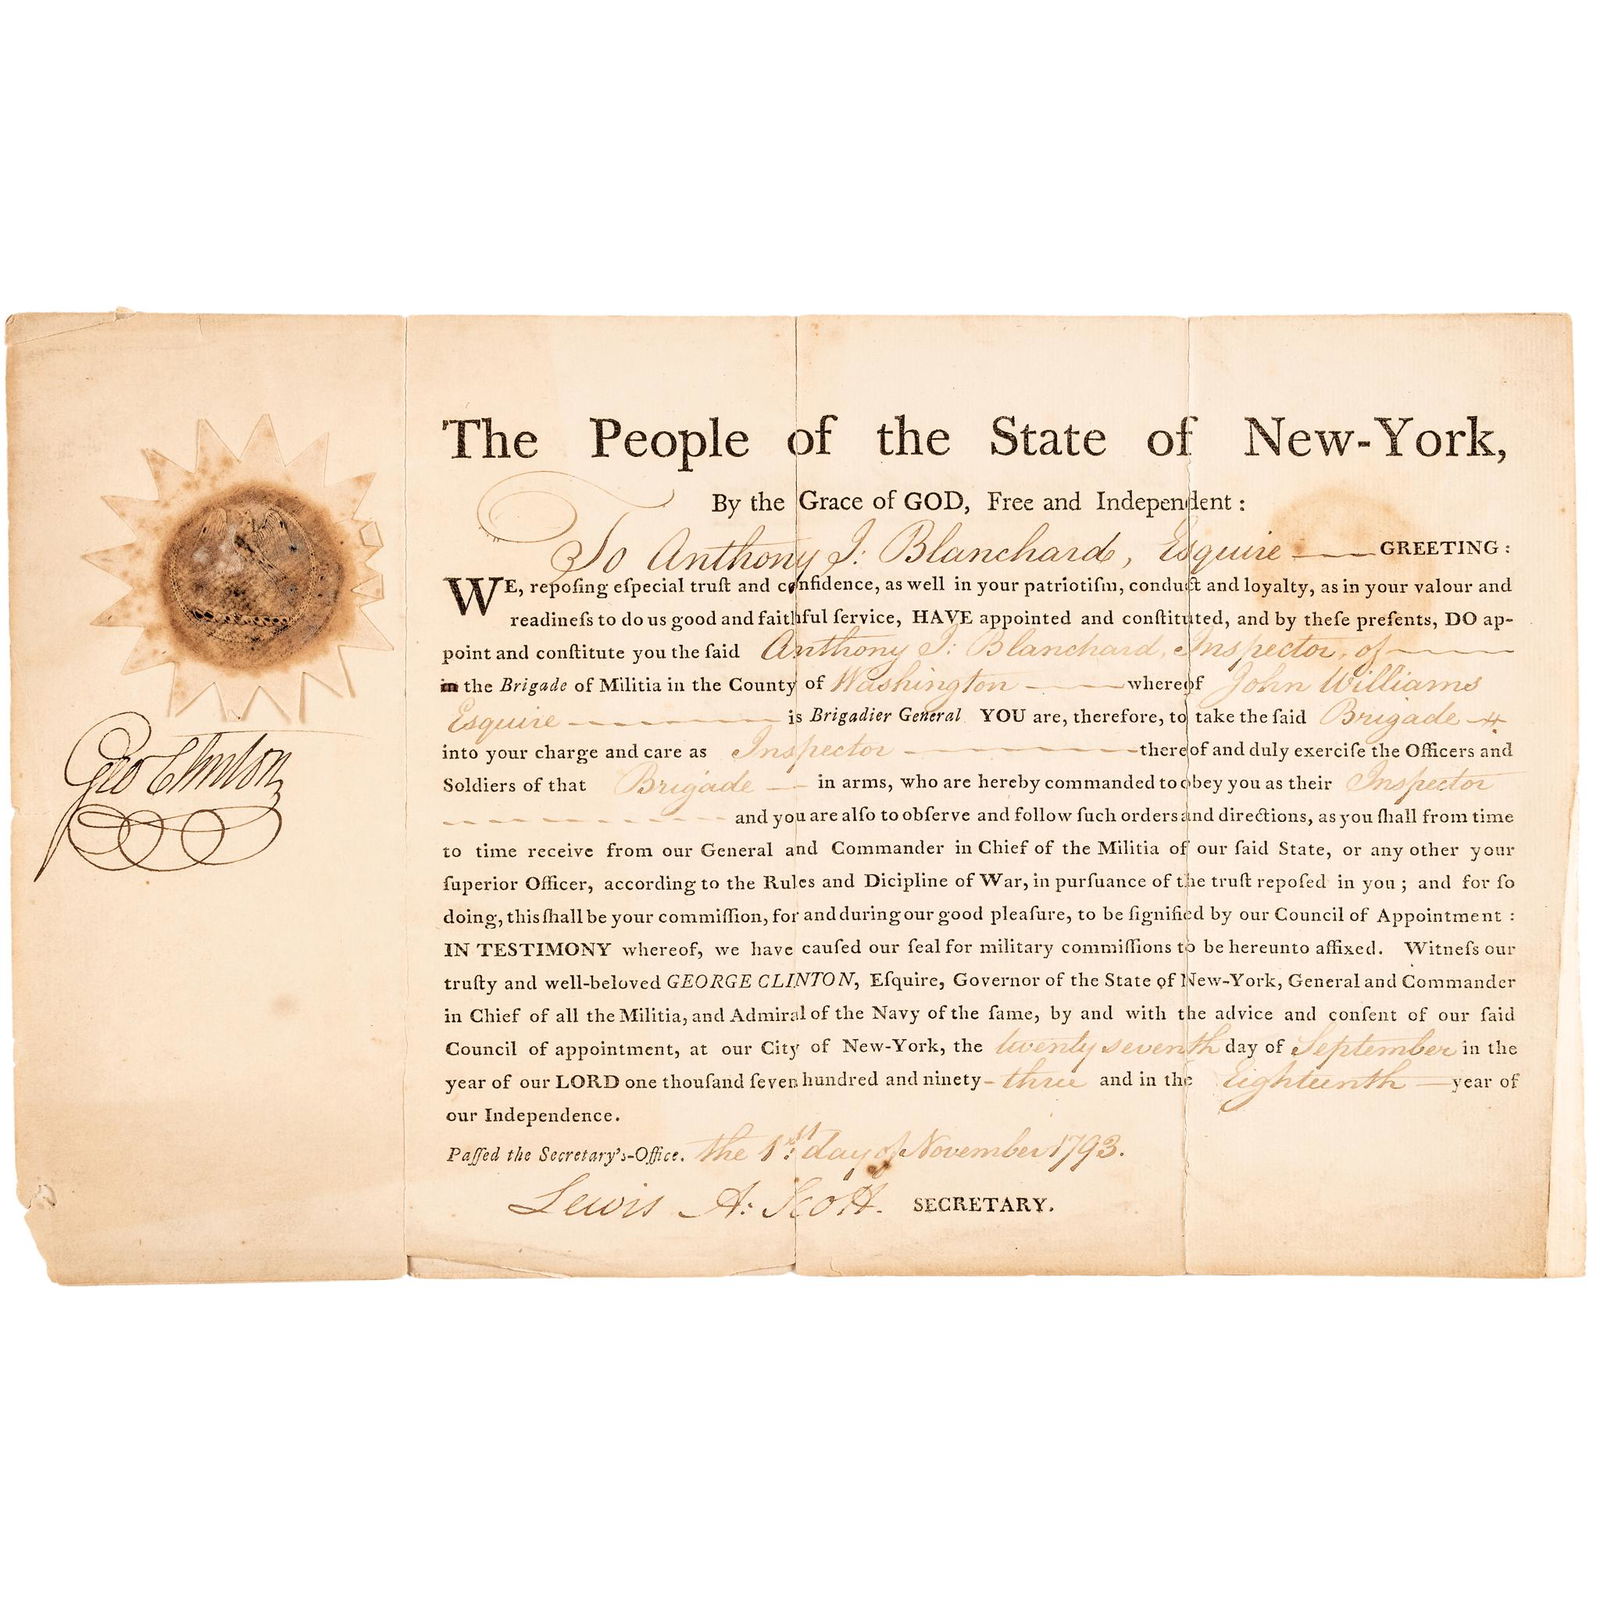 The People of the State of New-York,
By the Grace of GOD, Free and Independent:
To Anthony I: Blanchard, Esquire GREETING:
WE, repoſing eſpecial truſt and confidence, as well in your patriotiſm, conduct and loyalty, as in your valour and
readineſs to do us good and faithful ſervice, HAVE appointed and conſtituted, and by theſe preſents, DO ap-
point and conſtitute you the ſaid Anthony I: Blanchard, Inspector, of
in the Brigade of Militia in the County of Washington whereof John Williams
Esquire is Brigadier General. YOU are, therefore, to take the ſaid Brigade
into your charge and care as Inspector thereof and duly exerciſe the Officers and
Soldiers of that Brigade in arms, who are hereby commanded to obey you as their Inspector
and you are alſo to obſerve and follow ſuch orders and directions, as you ſhall from time
to time receive from our General and Commander in Chief of the Militia of our ſaid State, or any other your
ſuperior Officer, according to the Rules and Dicipline of War, in purſuance of the truſt repoſed in you; and for ſo
doing, this ſhall be your commiſſion, for and during our good pleaſure, to be ſignified by our Council of Appointment:
IN TESTIMONY whereof, we have cauſed our ſeal for military commiſſions to be hereunto affixed. Witneſs our
truſty and well-beloved GEORGE CLINTON, Eſquire, Governor of the State of New-York, General and Commander
in Chief of all the Militia, and Admiral of the Navy of the ſame, by and with the advice and conſent of our ſaid
Council of appointment, at our City of New-York, the twenty seventh day of September in the
year of our LORD one thouſand ſeven hundred and ninety-three and in the Eighteenth year of
our Independence.
Paſſed the Secretary's-Office. the 1st day of November 1793.
Lewis A: Scott. SECRETARY.
Geo Clinton